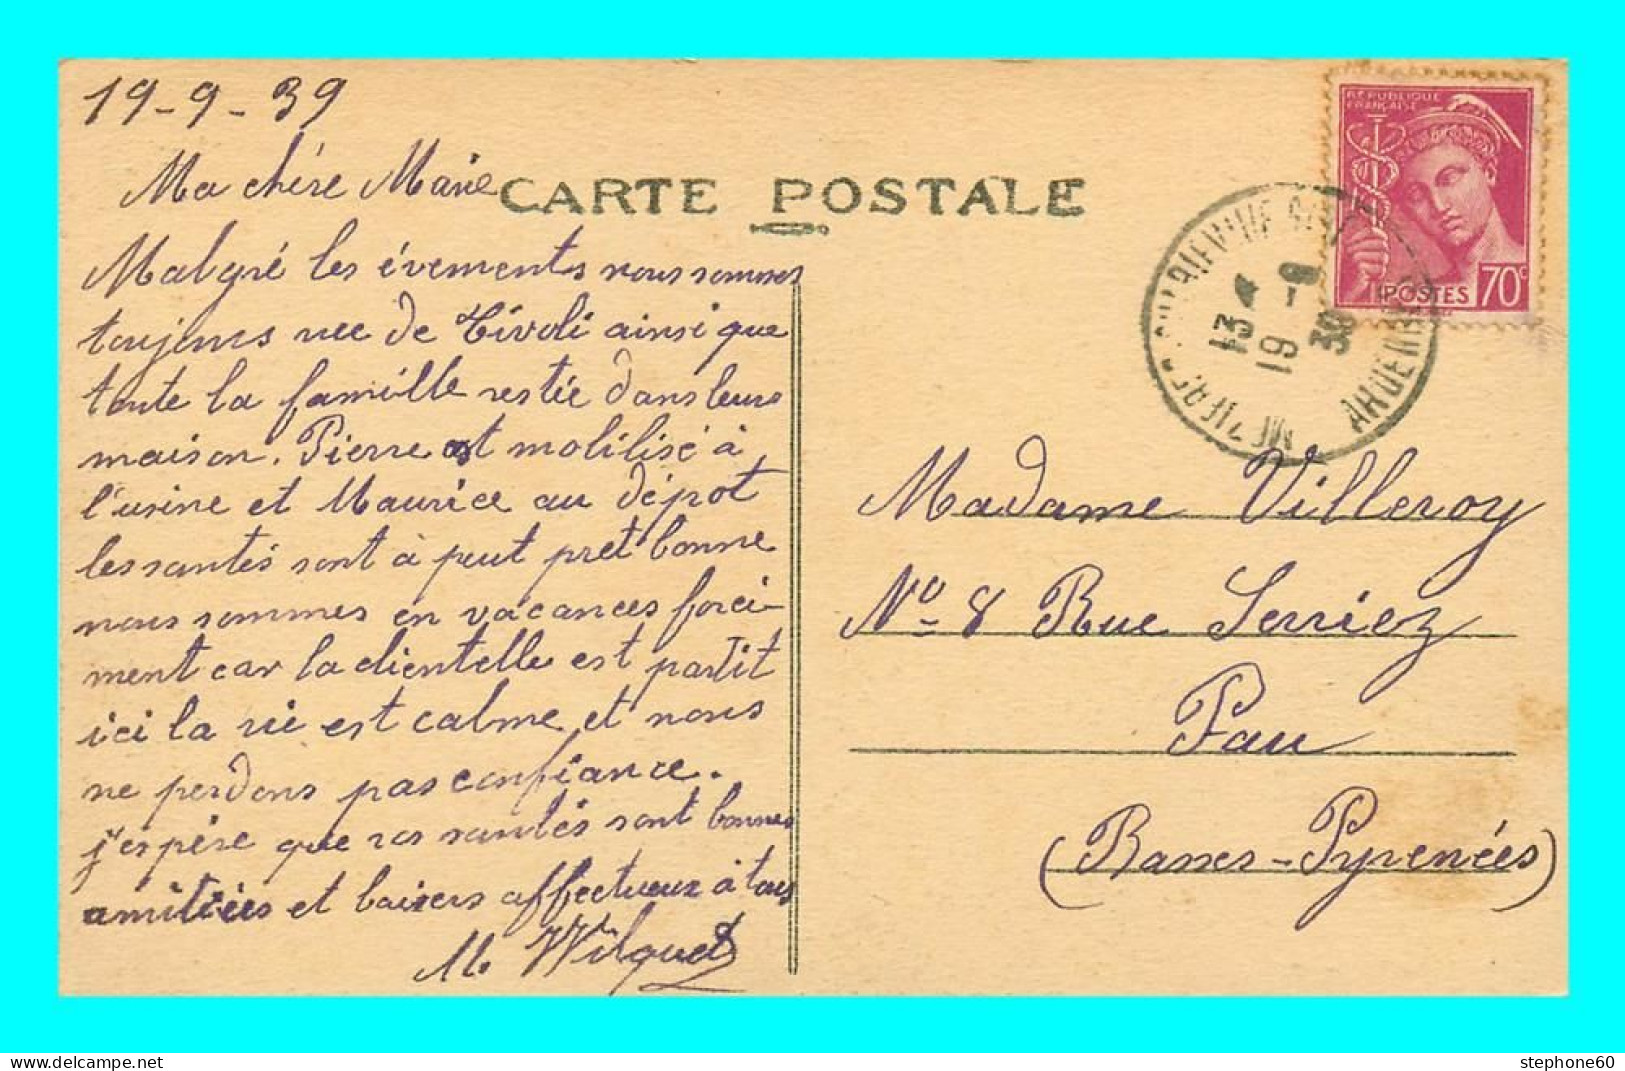 19-9-39
Ma chére Marie
CARTE POSTALE
Malgré les évements nous sommes
toujours rue de Tivoli ainsi que
toute la famille restée dans leurs
maison. Pierre est mobilisé à
l'usine et Maurice au dépot
les santés sont à peut pret bonne
nous sommes en vacances forcé-
ment car la clientelle est partit
ici la vie est calme et nous
ne perdons pas confiance.
j'espère que vos santés sont bonnes
amitiées et baisers affectueux à tous
M. Wilquet
REPUBLIQUE
FRANÇAISE
POSTES 70c
13
19 -9
39
ARDENNES
Madame Villeroy
No 8 Rue Serviez
Pau
(Basses-Pyrenées)
stephone60